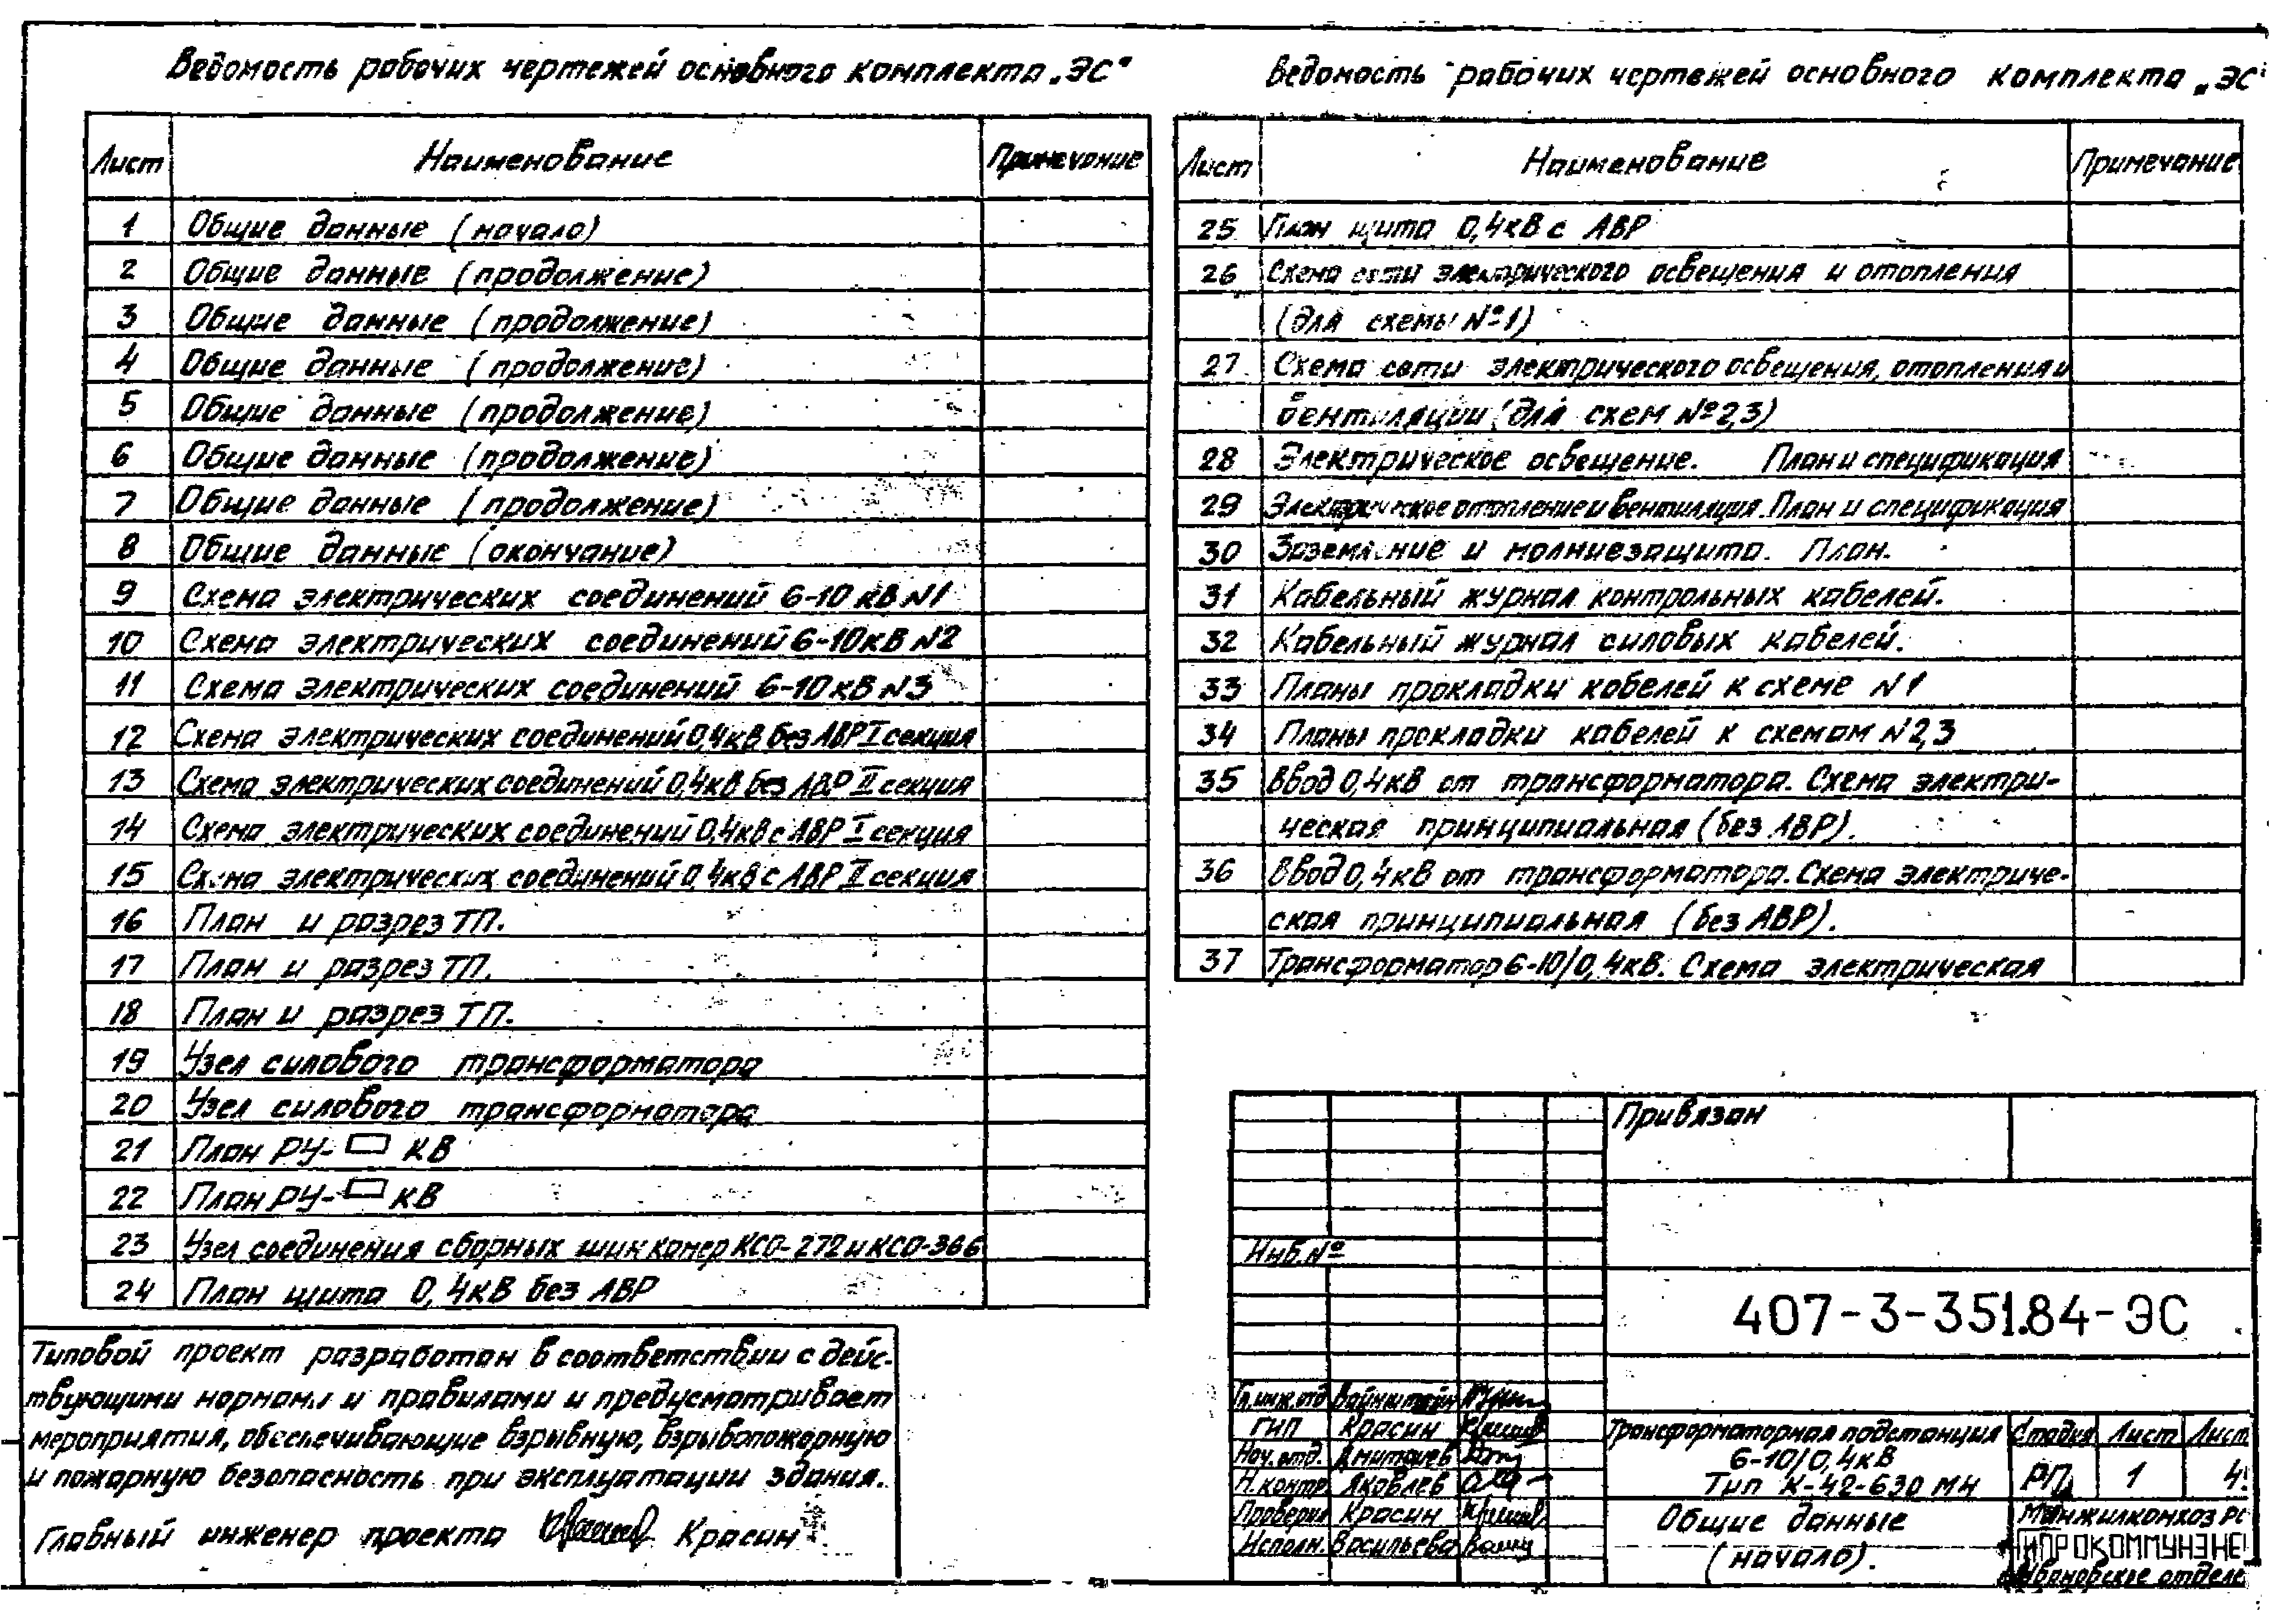 Ведомость рабочих чертежей основного комплекта „ЭС"
Лист Наименование Примечание
1 Общие данные (начало)
2 Общие данные (продолжение)
3 Общие данные (продолжение)
4 Общие данные (продолжение)
5 Общие данные (продолжение)
6 Общие данные (продолжение)
7 Общие данные (продолжение)
8 Общие данные (окончание)
9 Схема электрических соединений 6-10 кВ N1
10 Схема электрических соединений 6-10кВ N2
11 Схема электрических соединений 6-10кВ N3
12 Схема электрических соединений 0,4кВ без АВР I секция
13 Схема электрических соединений 0,4кВ без АВР II секция
14 Схема электрических соединений 0,4кВ с АВР I секция
15 Схема электрических соединений 0,4кВ с АВР II секция
16 План и разрез ТП.
17 План и разрез ТП.
18 План и разрез ТП.
19 Узел силового трансформатора
20 Узел силового трансформатора
21 План РУ- кВ
22 План РУ- кВ
23 Узел соединения сборных шин камер КСО-272 и КСО-366
24 План щита 0,4кВ без АВР
Ведомость рабочих чертежей основного комплекта „ЭС"
Лист Наименование Примечание
25 План щита 0,4кВ с АВР
26 Схема сети электрического освещения и отопления
(для схемы №1)
27 Схема сети электрического освещения, отопления и
вентиляции (для схем №2,3)
28 Электрическое освещение. План и спецификация
29 Электрическое отопление и вентиляция. План и спецификация
30 Заземление и молниезащита. План.
31 Кабельный журнал контрольных кабелей.
32 Кабельный журнал силовых кабелей.
33 Планы прокладки кабелей к схеме N1
34 Планы прокладки кабелей к схемам N2,3
35 Ввод 0,4кВ от трансформатора. Схема электри-
ческая принципиальная (без АВР).
36 Ввод 0,4кВ от трансформатора. Схема электриче-
ская принципиальная (без АВР).
37 Трансформатор 6-10/0,4кВ. Схема электрическая
Типовой проект разработан в соответствии с дейс-
твующими нормами и правилами и предусматривает
мероприятия, обеспечивающие взрывную, взрывопожарную
и пожарную безопасность при эксплуатации здания.
Главный инженер проекта Красин
Привязан
Инв.№
407-3-351.84-ЭС
Гл.инж.отд Вайнштейн
ГИП Красин
Нач.отд.
Н.контр. Яковлев
Проверил Красин
Исполн. Васильева
Трансформаторная подстанция
6-10/0,4кВ
Тип К-42-630 МН
Стадия Лист Лист
РП 1 4
Общие данные
(начало).
Минжилкомхоз РС
ГИПРОКОММУНЭНЕ
Ивановское отделе